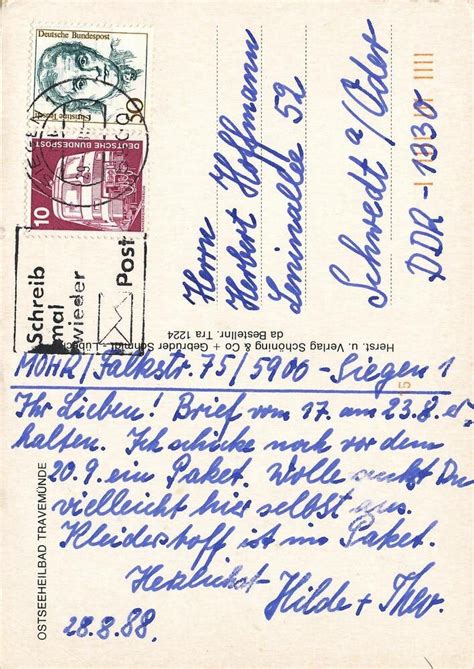 Deutsche Bundespost
50
DEUTSCHE BUNDESPOST
10
Schreib
mal
wieder
Post
Herrn
Herbert Hoffmann
Leninallee 52
Schwedt a/Oder
DDR-1330
Horst. u. Verlag Schöning & Co + Gebrüder Schmidt - Lübeck
da Bestellnr. Tra 1224
MOHR/Falkstr. 75/5900-Siegen 1
Ihr Lieben! Brief vom 17. am 23.8. er-
halten. Ich schicke noch vor dem
20.9. ein Paket. Wolle suchst Du
vielleicht hier selbst aus.
Kleiderstoff ist im Paket.
Herzlichst
Hilde + Theo.
28.8.88.
OSTSEEHEILBAD TRAVEMÜNDE